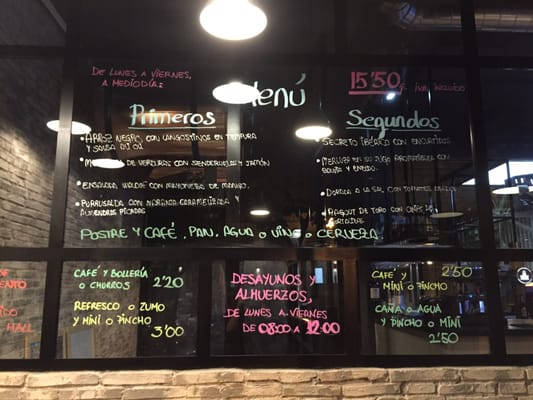 DE LUNES A VIERNES,
A MEDIODÍA:
Menú
15'50
€ IVA INCLUIDO
Primeros
ARROZ NEGRO CON LANGOSTINOS EN TEMPURA
Y SALSA ALI OLI
DE VERDURAS CON Y JAMÓN
ENSALADA WALDORF CON DE MANGO,
PURRUSALDA CON NARANJA CARAMELIZADA Y
ALMENDRAS PICADAS
Segundos
SECRETO IBÉRICO CON ENCURTIDOS
MERLUZA EN SU JUGO CON
Y ENELDO.
DORADA A LA SAL, CON TOMATES
RAGOUT DE TORO CON
POSTRE Y CAFÉ, PAN, AGUA O VINO O CERVEZA
HALL
CAFÉ Y BOLLERÍA
O CHURROS 2'20
REFRESCO O ZUMO
Y MINI O PINCHO
3'00
DESAYUNOS Y
ALMUERZOS,
DE LUNES A VIERNES
DE 08:00 A 12:00
CAFÉ Y 2'50
MINI O PINCHO
CAÑA O AGUA
Y PINCHO O MINI
2'50